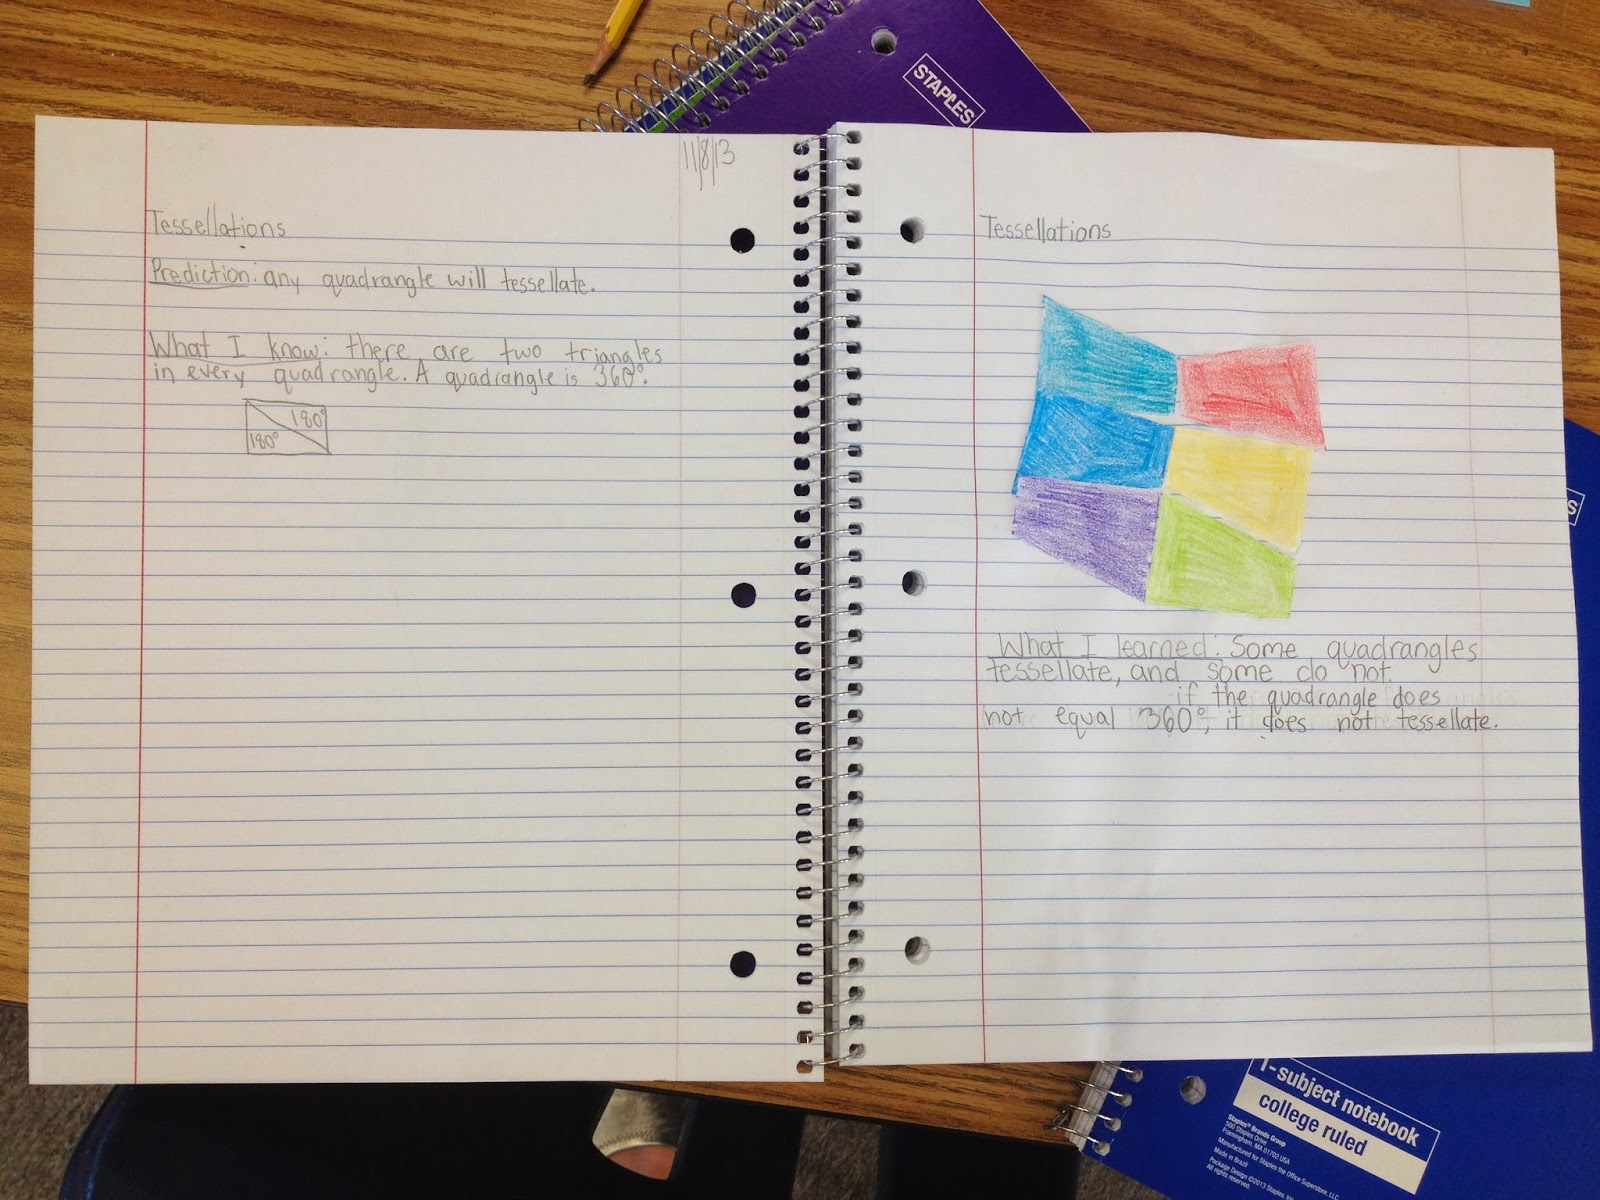 11/8/13
Tessellations
Prediction: any quadrangle will tessellate.
What I know: there are two triangles
in every quadrangle. A quadrangle is 360°.
180°
180°
STAPLES
Tessellations
What I learned: Some quadrangles
tessellate, and some do not.
if the quadrangle does
not equal 360°, it does not tessellate.
S
1-subject notebook
college ruled
Staples® Brands Group
500 Staples Drive
Framingham, MA 01702 USA
Manufactured for Staples the Office Superstore, LLC
Made in Brazil
Package Design ©2013 Staples, Inc
All rights reserved.